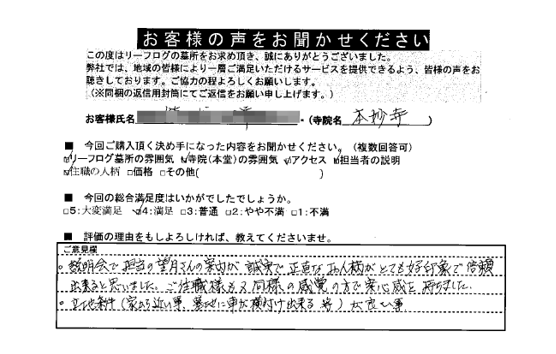 お客様の声をお聞かせください
この度はリーフログの墓所をお求め頂き、誠にありがとうございました。
弊社では、地域の皆様により一層ご満足いただけるサービスを提供できるよう、皆様の声をお
聴きしております。ご協力の程よろしくお願いします。
(※同梱の返信用封筒にてご返信をお願い申し上げます。)
お客様氏名 ・(寺院名 本妙寺 )
■ 今回ご購入頂く決め手になった内容をお聞かせください。(複数回答可)
☑リーフログ墓所の雰囲気 ☑寺院(本堂)の雰囲気 ☑アクセス ☑担当者の説明
☑住職の人柄 □価格 □その他( )
■ 今回の総合満足度はいかがでしたでしょうか。
□5:大変満足 ☑4:満足 □3:普通 □2:やや不満 □1:不満
■ 評価の理由をもしよろしければ、教えてくださいませ。
ご意見欄
。説明会で担当の望月さんの案内が誠実で正直なお人柄がとても好印象で信頼
出来ると思いました。ご住職様も又同様の感覚の方で安心感を持ちました。
。立地条件(家から近い事、墓地に車が横付け出来る 等)が良い事